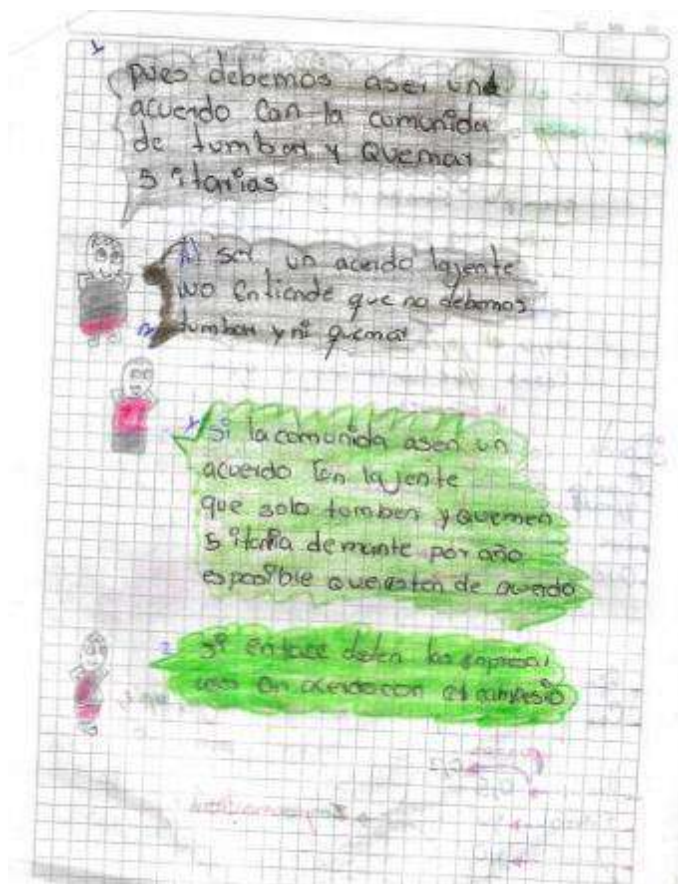 1
pues debemos aser una
acuerdo Con la comunida
de tumbar y Quemar
5 itarias
un acerdo la jente
no Entiende que no debemos
tumbar y ni quemar
si la comunida asen un
acuerdo Con la jente
que solo tumben y quemen
5 itaria de monte por año
es posible que esten de acuerdo
2
si entoce deben las
con el